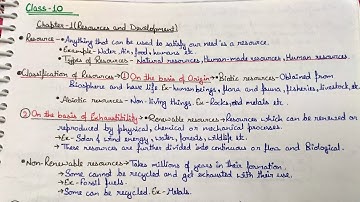 Class-10
Chapter-1(Resources and Development)
• Resource → Anything that can be used to satisfy our need is a resource.
• Example- Water, Air, food, humans etc
• Types of Resources- Natural resources, Human-made resources, Human resources
• Classification of Resources → ① On the basis of Origin → • Biotic resources- Obtained from
Biosphere and have life. Ex- human beings, flora and fauna, fisheries, livestock, etc
• Abiotic resources- Non-living things. Ex- Rocks and metals etc.
② On the basis of Exhaustibility- • Renewable resources → Resources which can be renewed or
reproduced by physical, chemical or mechanical processes.
→ Ex- Solar & wind energy, water, forests, wildlife etc
→ These resources are further divided into continuous or flow and Biological.
• Non-Renewable resources- → Takes millions of years in their formation.
→ Some cannot be recycled and get exhausted with their use.
→ Ex- Fossil fuels.
→ Some can be recycled. Ex- Metals.